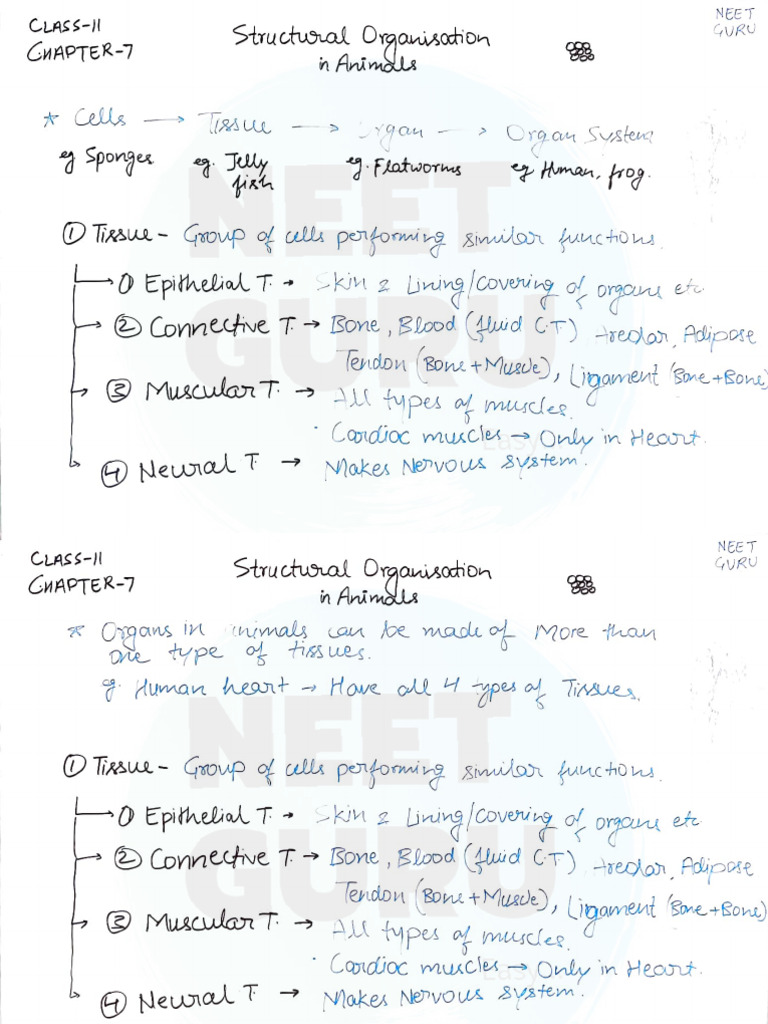 CLASS-11
CHAPTER-7
Structural Organisation
in Animals
NEET
GURU
* Cells → Tissue → Organ → Organ System
eg Sponges eg. Jelly fish eg. Flatworms eg Human, frog.
① Tissue - Group of cells performing similar functions.
① Epithelial T. → Skin & Lining/Covering of organs etc
② Connective T. → Bone, Blood (fluid C.T) Areolar, Adipose
Tendon (Bone+Muscle), Ligament (Bone+Bone)
③ Muscular T. → All types of muscles.
Cardiac muscles → Only in Heart.
④ Neural T. → Makes Nervous system.
NEET
GURU
CLASS-11
CHAPTER-7
Structural Organisation
in Animals
NEET
GURU
* Organs in animals can be made of More than
one type of tissues.
eg. Human heart → Have all 4 types of Tissues.
① Tissue - Group of cells performing similar functions.
① Epithelial T. → Skin & Lining/Covering of organs etc
② Connective T. → Bone, Blood (fluid C.T) Areolar, Adipose
Tendon (Bone+Muscle), Ligament (Bone+Bone)
③ Muscular T. → All types of muscles.
Cardiac muscles → Only in Heart.
④ Neural T. → Makes Nervous system.
NEET
GURU